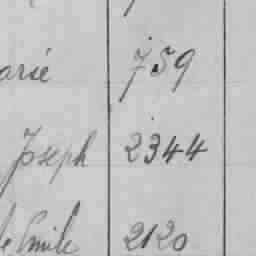 arie 759
Joseph 2344
le Emile 2120